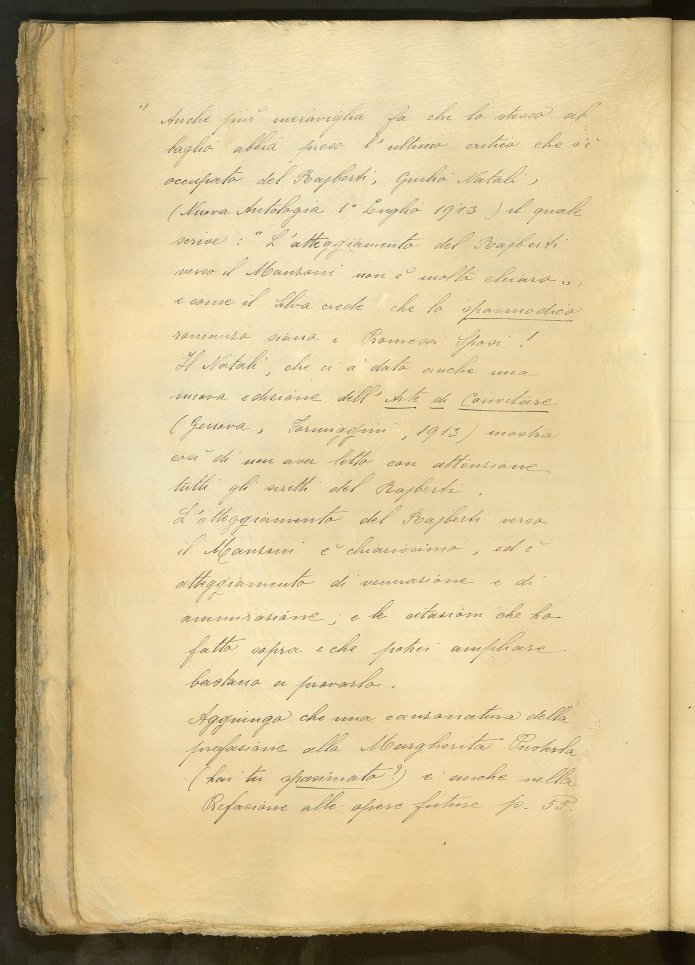 1) Anche più meraviglia fa che lo stesso ab
baglio abbia preso l'ultimo critico che s'è
occupato del Rajberti, Giulio Natali,
(Nuova Antologia 1° Luglio 1913) il quale
scrive: "L'atteggiamento del Rajberti
verso il Manzoni non è molto chiaro",,
e come il Silva crede che lo spasmodico
romanzo siano i Promessi Sposi!
Il Natali, che ci à dato anche una
nuova edizione dell'Arte di Convitare
(Genova, Formiggini, 1913) mostra
così di non aver letto con attenzione
tutti gli scritti del Rajberti.
L'atteggiamento del Rajberti verso
il Manzoni è chiarissimo, ed è
atteggiamento di venerazione e di
ammirazione; e le citazioni che ho
fatto sopra e che potrei ampliare
bastano a provarlo.
Aggiungo che una canzonatura della
prefazione alla Margherita Pusterla
(hai tu spasimato?) è anche nella
Prefazione alle opere future p. 55.